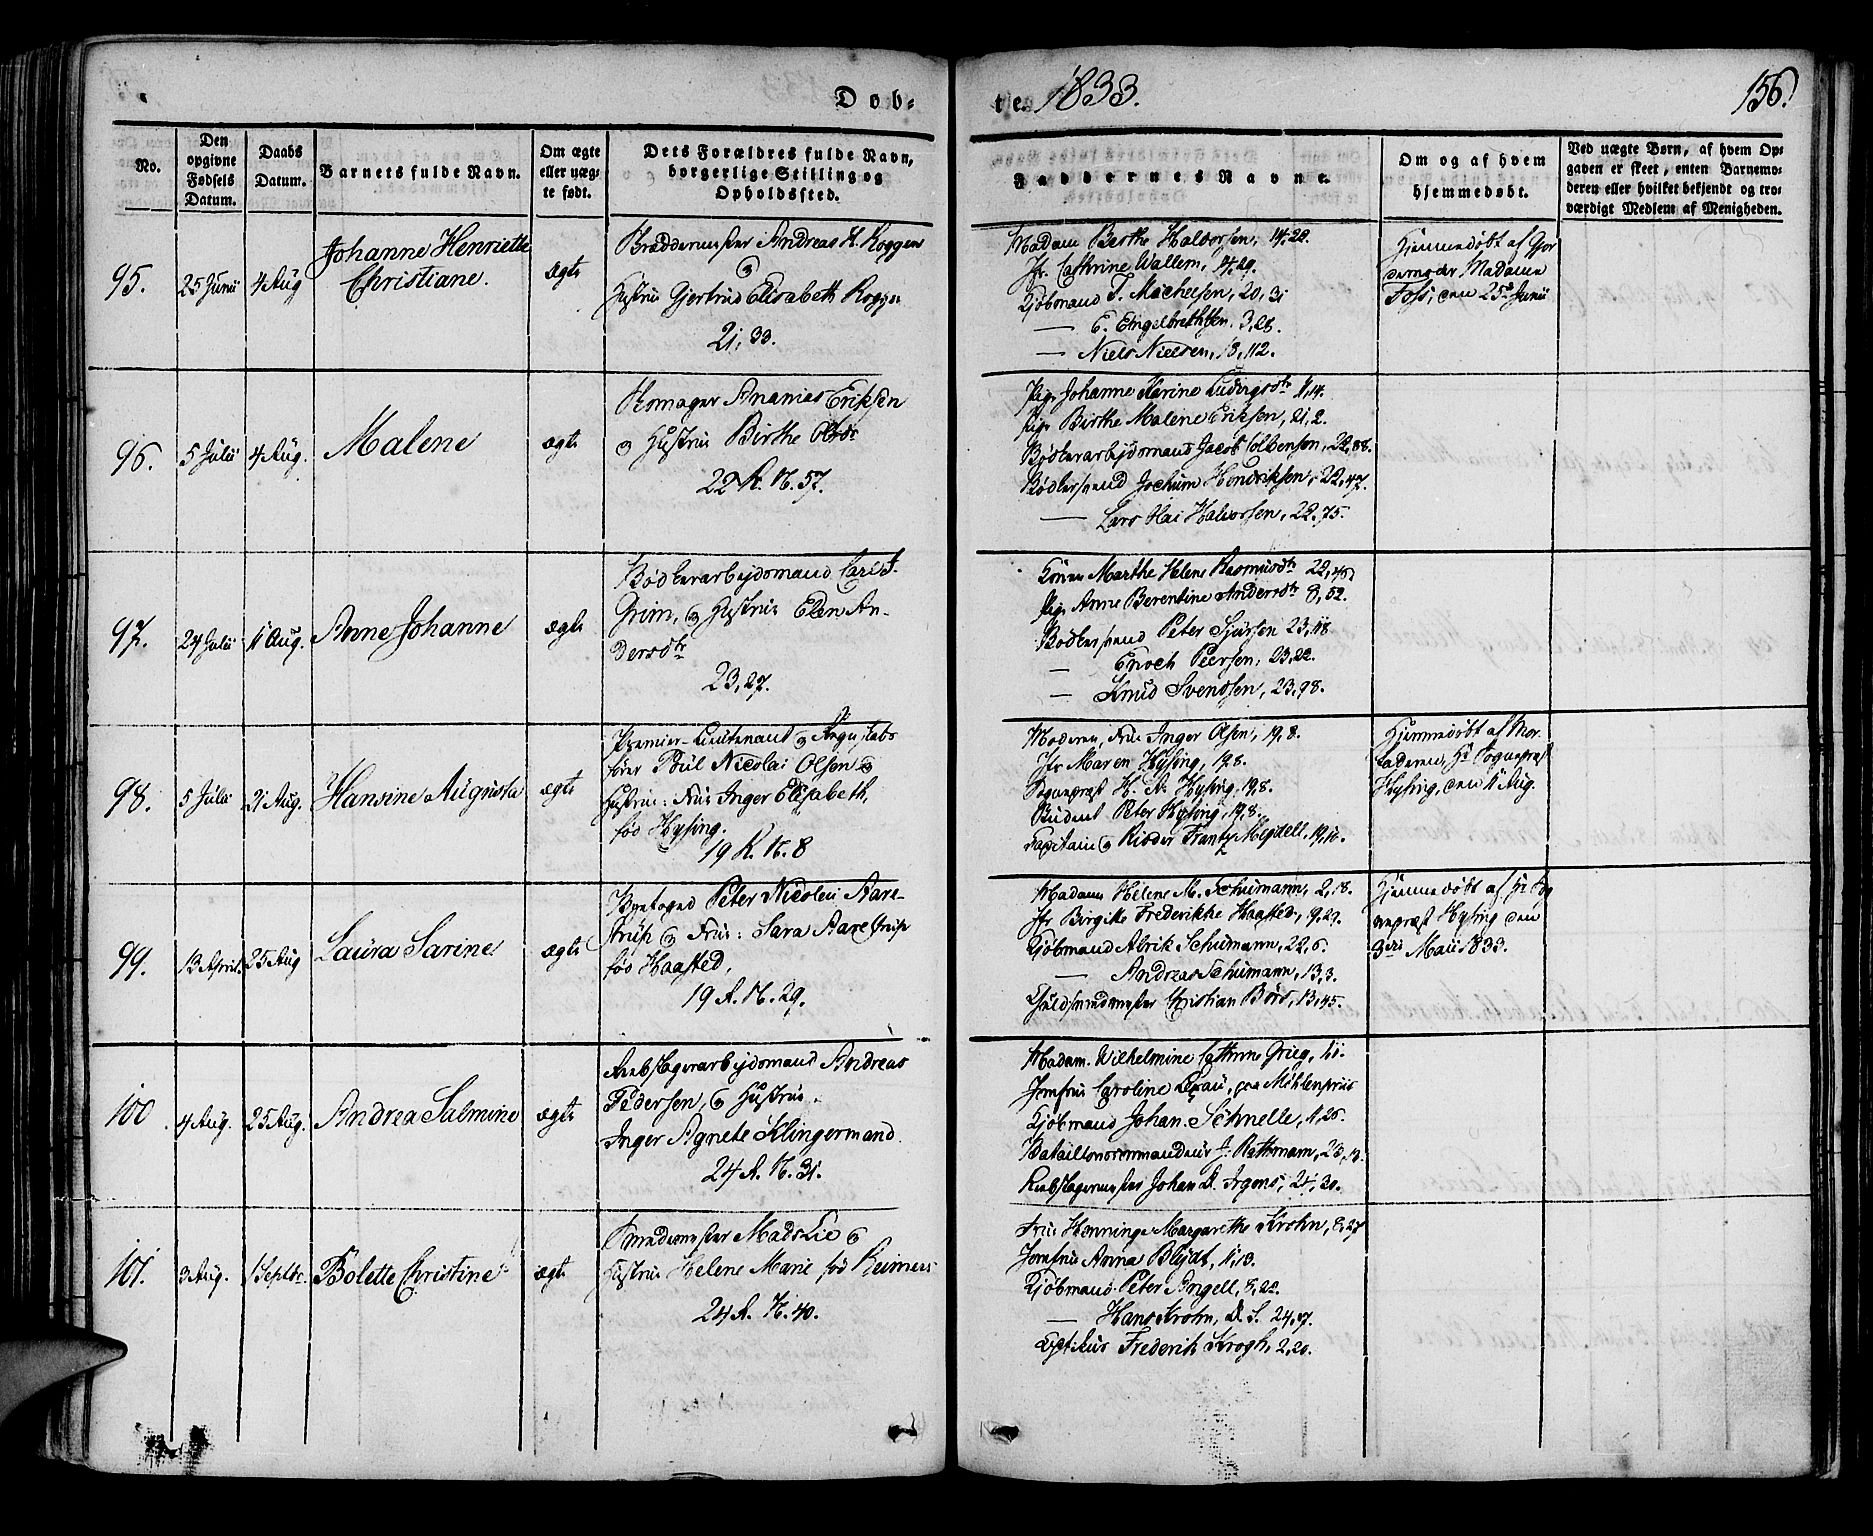 Døb-
te. 1833. 156.
No.
Den opgivne Fødsels Datum.
Daabs Datum.
Barnets fulde Navn.
Om ægte eller uægte født.
Dets Forældres fulde Navn, borgerlige Stilling og Opholdssted.
Faddernes Navne.
Om og af hvem hjemmedøbt.
Ved uægte Børn, af hvem Opgaven er skeet, enten Barnemoderen eller hvilket bekjendt og troværdigt Medlem af Menigheden.
95. 25 Junii 4 Aug
Johanne Henriette
Christiane.
ægte
Andreas H. Roggen
&
Hustrue Gjertrud Elisabeth Roggen
21, 33.
Madam Berthe Halvorsen, 14,28.
Jfr. Cathrine Wallem, 4,29.
Kjøbmand T. Michelsen, 20, 31
— E. Engelbrethsen. 3,28.
— Niels Nielsen, 18, 112.
Hjemmedøbt af Jor
demoder Madame
Foss, den 25de Junii
96. 5 Julii 4 Aug.
Malene
ægte
Ananias Eriksen
& Hustrue Birthe Olsdr
22 R. N. 57.
Pige Johanne Karine Ludvigsdtr 1,14.
Pige Birthe Malene Eriksen, 21,2.
Bødkerarbejdsmand Jacob Colbensen, 22,88.
Bødkersvend Jochum Hendriksen, 22,47.
— Lars Kai Halvorsen, 22,75.
97. 24 Julii 11 Aug.
Anne Johanne
ægte
Bødkerarbejdsmand Carl J.
Grim, & Hustrue Elen An-
dersdtr
23,27.
Konen Marthe Helene Rasmusdtr 22,
Pige Anne Berentine Andersdtr 8,52.
Bødkersvend Peter Sjursen 23,118
— Enoch Peersen, 23,22.
— Knud Svendsen, 23,98.
98. 5 Julii 21 Aug.
Hansine Augusta
ægte
Premier-Lieutenand &
fører Poul Nicolai Olsen &
Hustrue: Frue Inger Elisabeth,
fød Hysing.
19 R. N. 8
Moderen, Frue Inger Olsen, 19,8.
Jfr Maren Hysing, 19,8.
Sogneprest H. N. Hysing, 19,8.
Student Peter Hysing, 19,8.
Capitain & Ridder Frantz Mejdell, 19,
Hjemmedøbt af Mor
faderen, Hr Sogneprest
Hysing, den 11 Aug.
99. 13 April. 25 Aug
Laura Sarine
ægte
Byefoged Peter Nicolai Aare-
strup & Frue: Sara Aarestrup
fød Haasted,
19 R. N. 29.
Madam Helene M. Schumann, 2,18.
Jfr Birgitte Frederikke Haasted, 9,29.
Kjøbmand Alrik Schumann, 22,6.
— Andreas Schumann, 13,3.
Guldsmedmester Christian Børs, 13,45.
Hjemmedøbt af Hr Sog
neprest Hysing den
3die Maii 1833.
100. 4 Aug. 25 Aug.
Andrea Salmine
ægte
Rebslagerarbejdsmand Andreas
Pedersen, & Hustrue.
Inger Agnete Klingermand.
24 R. N. 31.
Madam. Wilhelmine Cathrine Grieg,
Jomfrue Caroline
Kjøbmand Johan. Schnelle, 1,26.
J. Rathmann, 23,
Rebslagermester Johan D. Irgens, 24, 30.
101. 3 Aug. 1 Septbr.
Bolette Christine
ægte
Smedmester Mads Lie &
Hustrue Helene Marie fød Reimers
24 R. N. 40.
Frue Henninge Margarethe Krohn, 8,27
Jomfrue Anna Blydt, 1,13.
Kjøbmand Peter Angell, 8,22.
— Hans Krohn, D. S. 24,7.
Frederik Krogh, 2,20.